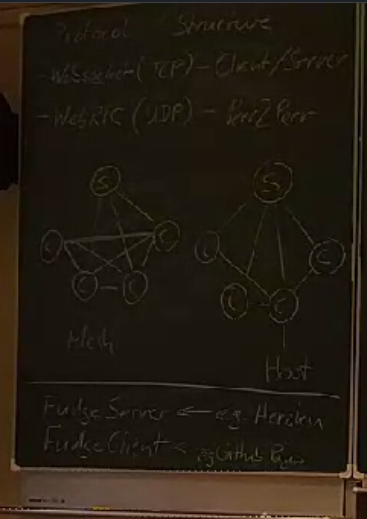 Protocol / Structure
- WebSocket (TCP) - Client/Server
- WebRTC (UDP) - Peer2Peer
S
S
C C
C C
C - C
C - C
Mesh
Host
Fudge Server ← e.g. Heroku
Fudge Client ← e.g. Github Pages